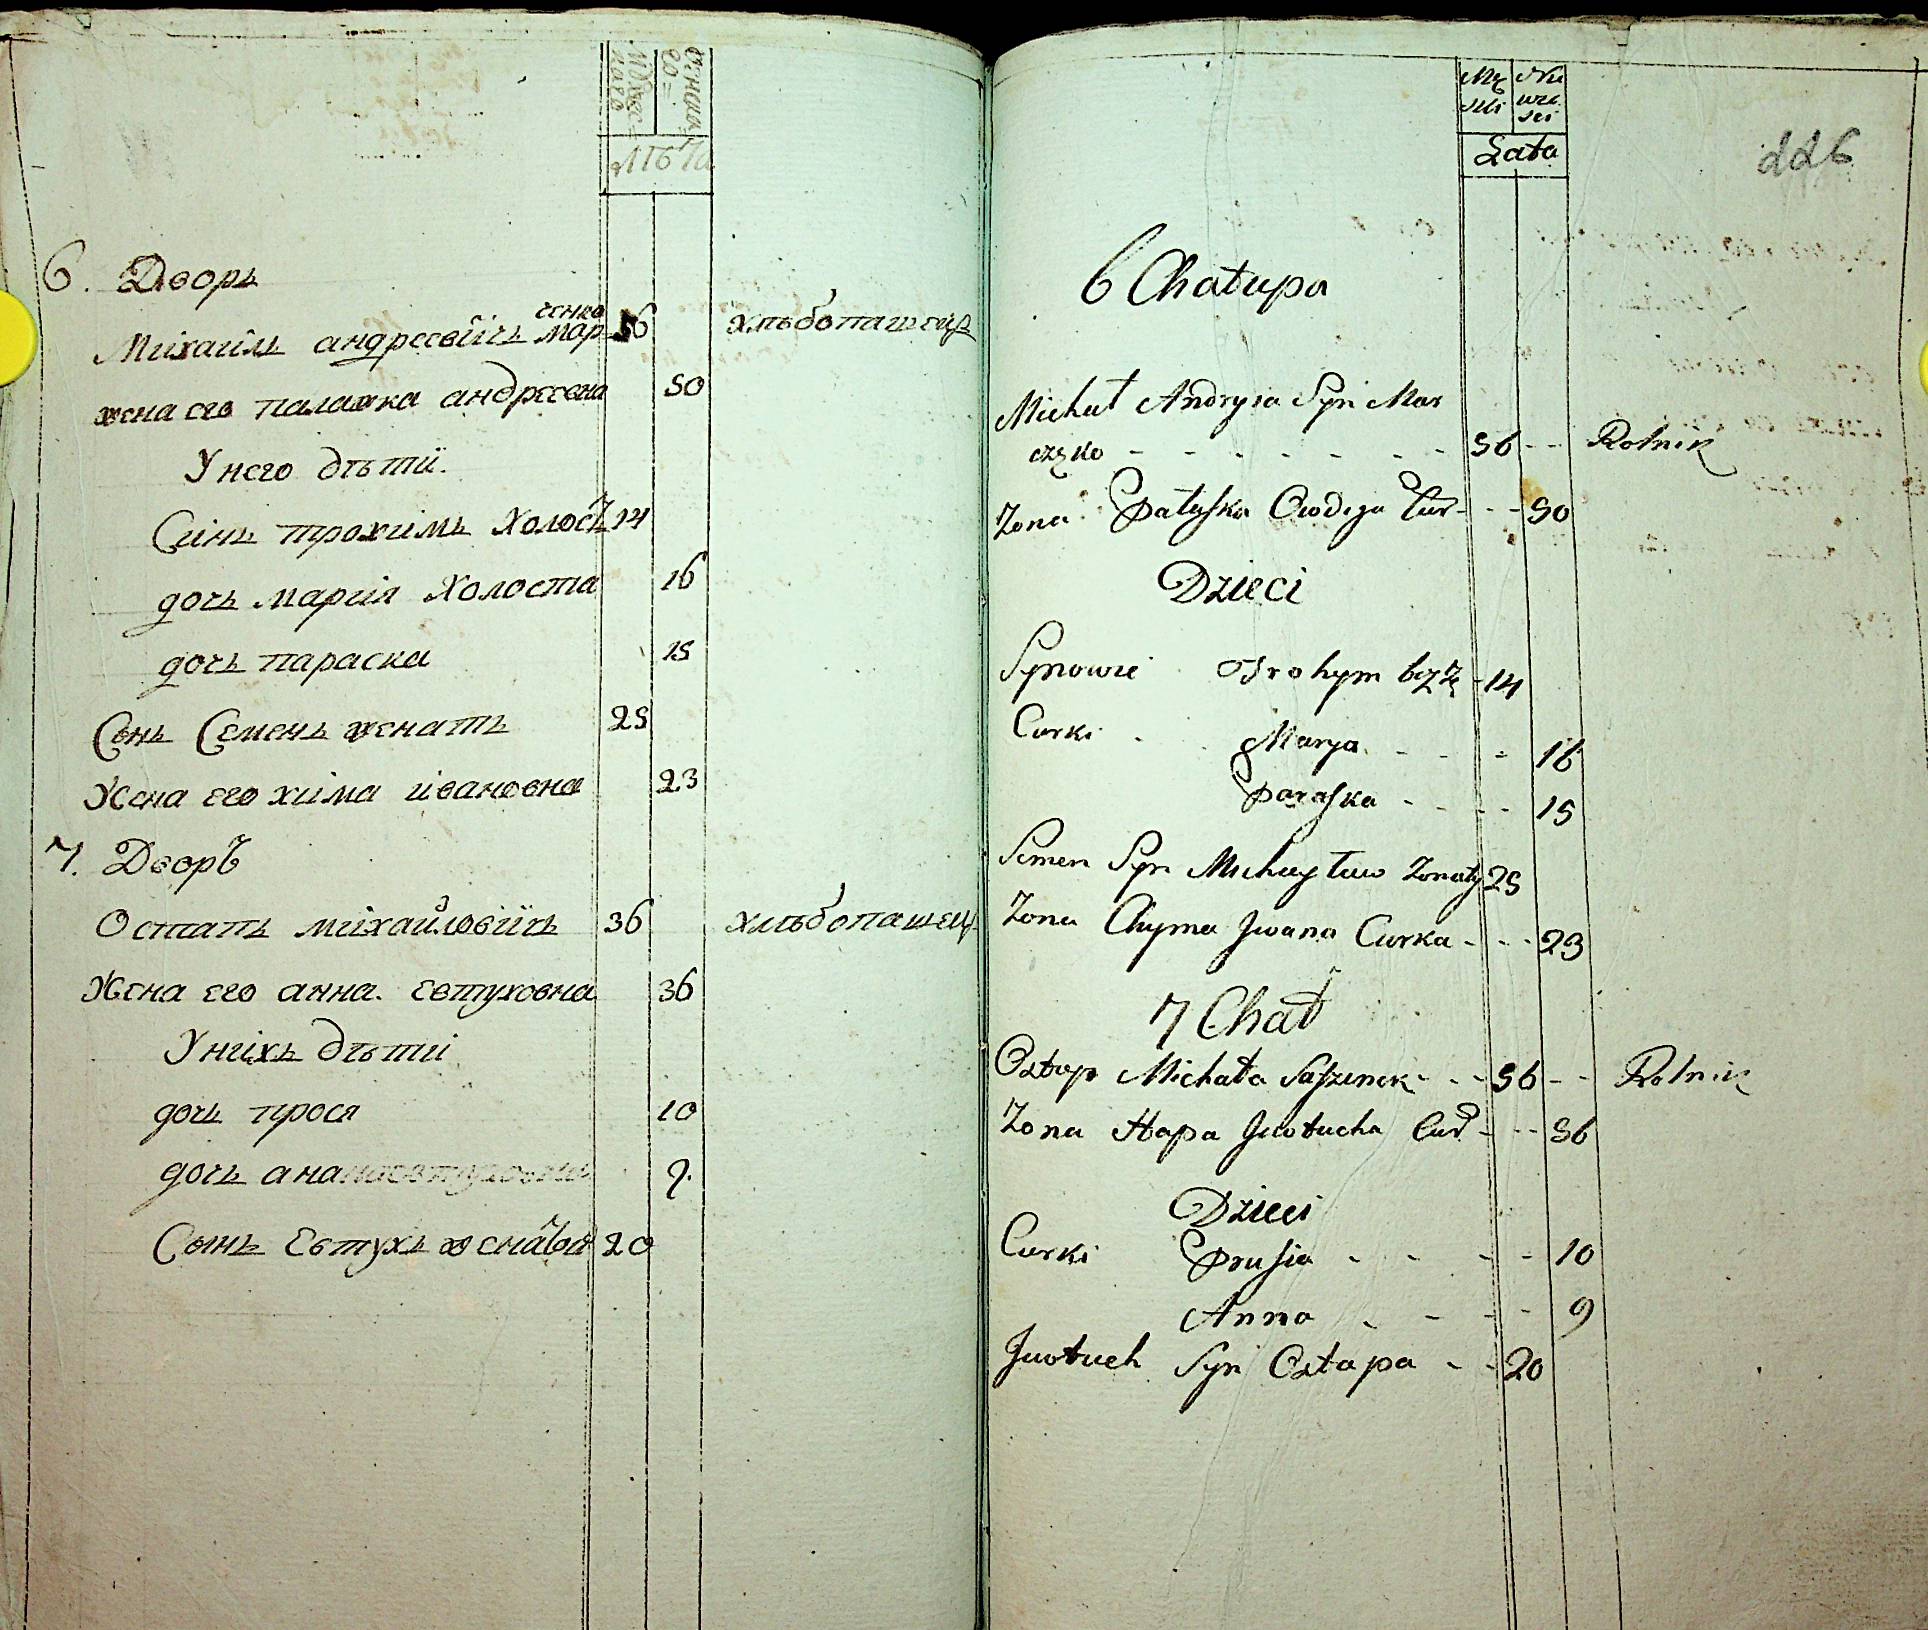 Лѣта
6. Дворъ
Михаилъ андреевичъ марченко 56 хлѣбопашецъ
жена его палажка андреевна 50
У него дѣти.
Синъ трохимъ холостъ 14
дочь мария холоста 16
дочь параска 15
Сынъ Семенъ женатъ 25
Жена его хима ивановна 23
7. Дворъ
Остапъ михайловичъ 36 хлѣбопашецъ
Жена его анна. евтуховна 36
У нихъ дѣти
дочь прося 10
дочь ана 9.
Сынъ Евтухъ 20
226
Mę Nie
ski wie
sci
Lata
6 Chałupa
Michał Andryia Syn Mar
częko 56 Rolnik
Żona Pałaszka Cur 50
Dzieci
Synowie Trohym bez Ż 14
Curki Marya 16
Paraska 15
Semen Syn Michayłuw Żonaty 25
Żona Chyma Jwana Curka 23
7 Chał
Ostap Michała 36 Rolnik
Żona Hapa Jwtucha Cur 36
Dzieci
Curki Prusia 10
Anna 9
Jwtuch Syn Ostapa 20